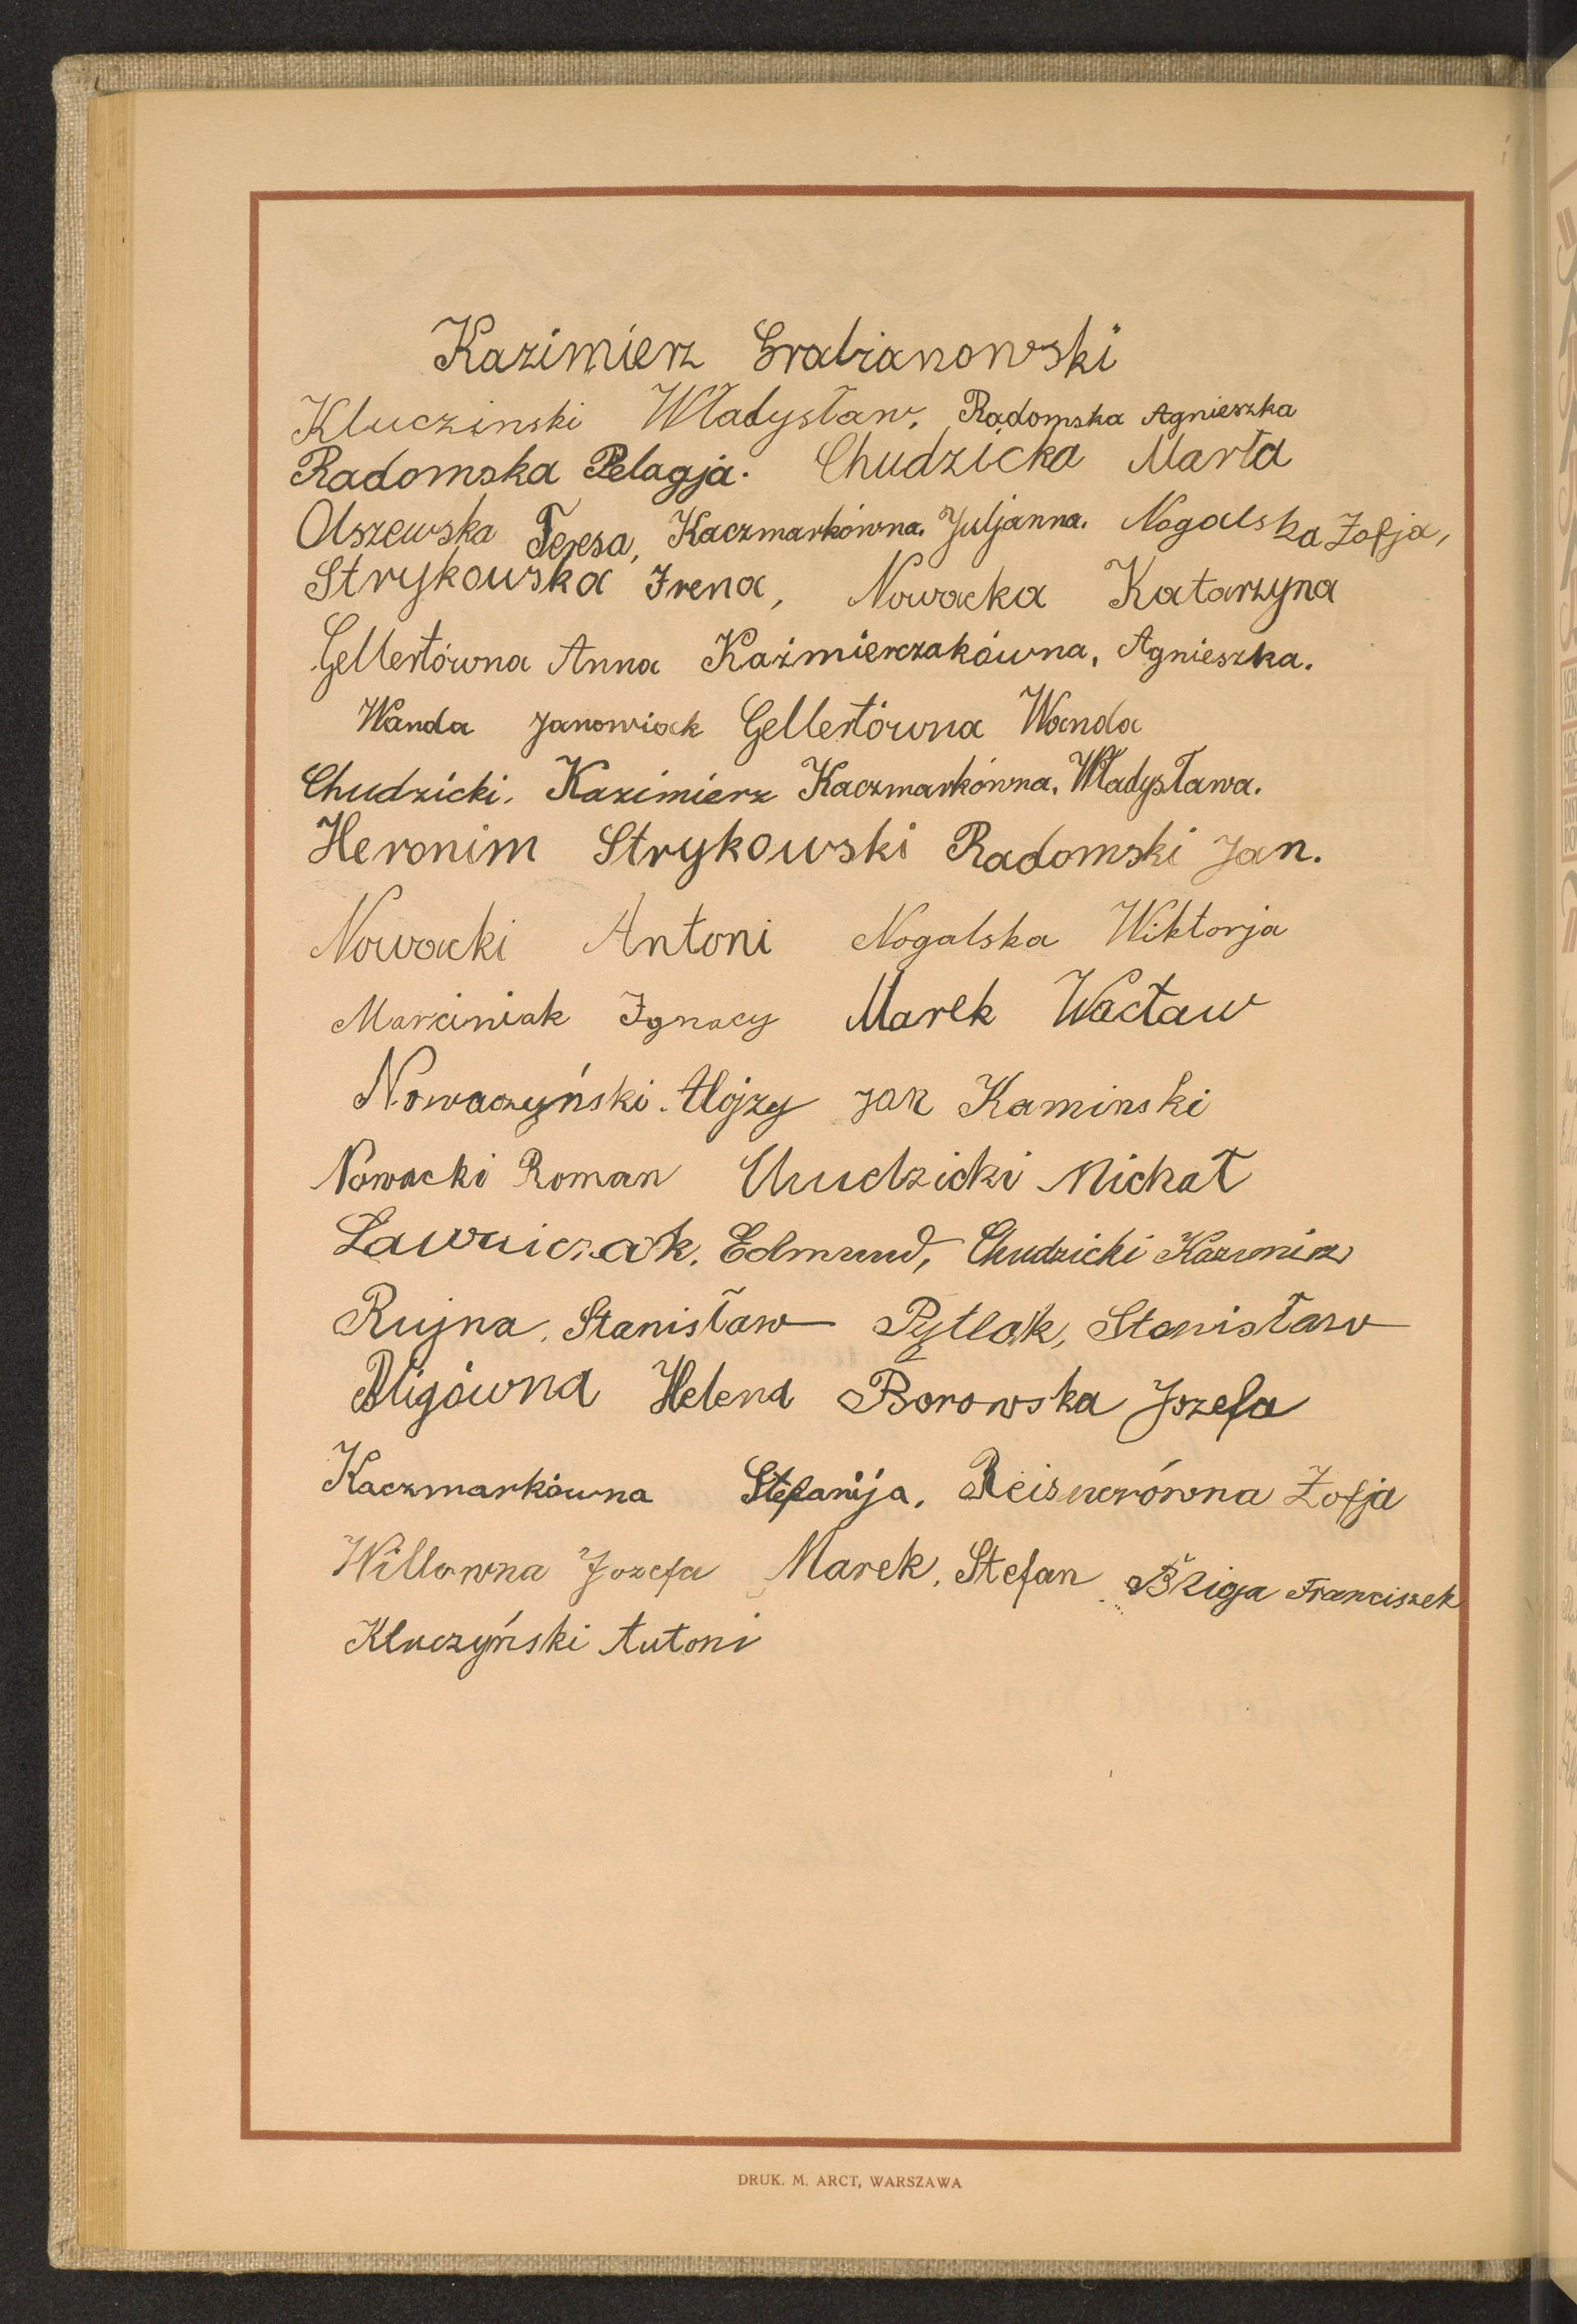 Kazimierz Grabianowski
Kluczinski Władysław, Radomska Agnieszka
Radomska Pelagja. Chudzicka Marta
Olszewska Teresa, Kaczmarkówna. Juljanna. Nogalska Zofja,
Strykowska Irena, Nowacka Katarzyna
Gellertówna Anna Kaźmierczakówna, Agnieszka.
Wanda Janowiack Gellertówna Wanda
Chudzicki. Kazimierz Kaczmarkówna. Władysława.
Heronim Strykowski Radomski Jan.
Nowacki Antoni Nogalska Wiktorja
Marciniak Ignacy Marek Wacław
Nowaczyński. Alojzy Jan Kaminski
Nowacki Roman Chudzicki Michał
Ławniczak. Edmund, Chudzicki Kazimierz
Rujna. Stanisław Pytlak, Stanisław
Bligówna Helena Borowska Jozefa
Kaczmarkówna Stefanija. Reisnerówna Zofja
Willówna Jozefa Marek. Stefan Bziga Franciszek
Kluczyński Antoni
DRUK. M. ARCT, WARSZAWA